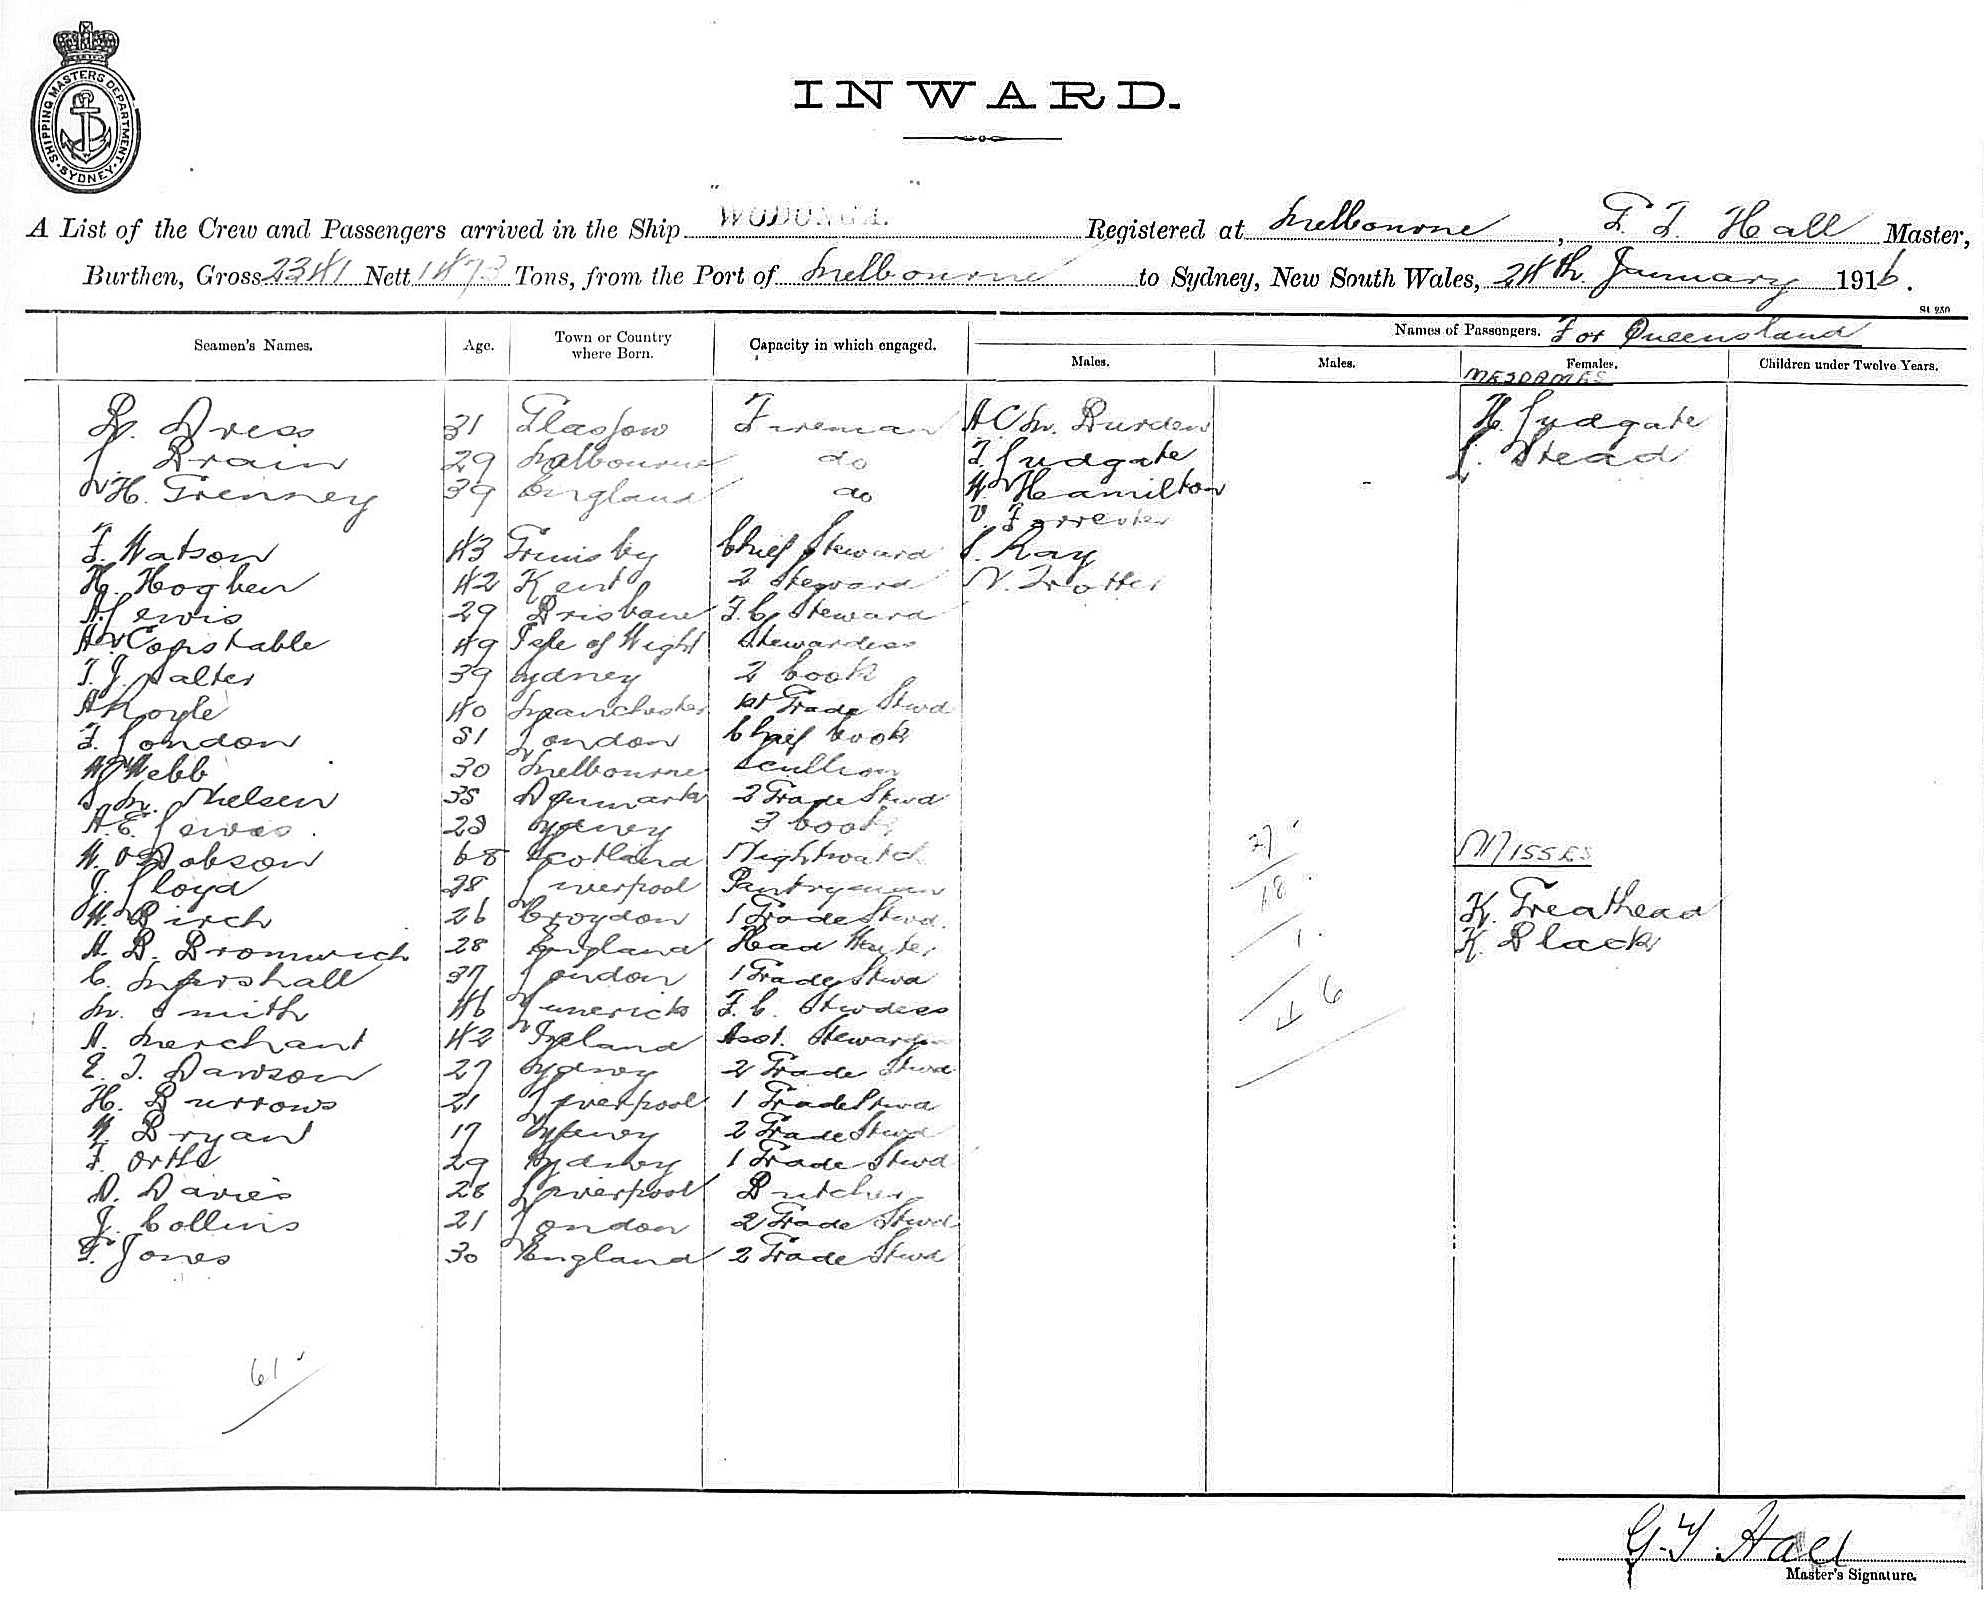 SHIPPING MASTERS DEPARTMENT · SYDNEY ·
INWARD.
A List of the Crew and Passengers arrived in the Ship "WODONGA." Registered at Melbourne, G. T. Hall Master,
Burthen, Gross 2341 Nett 1473 Tons, from the Port of Melbourne to Sydney, New South Wales, 24th January 1916.
St 250
Seamen's Names. Age. Town or Country where Born. Capacity in which engaged. Names of Passengers. For Queensland
Males. Males. Females. Children under Twelve Years.
MESDAMES
31 Glasgow Fireman A. C. M. Burden H. Ludgate
L. Brain 29 Melbourne do T. Ludgate L. Stead
39 England do W. Hamilton
V. Forrester
F. Watson 43 Grimsby Chief Steward L. Ray
H. Hogben 42 Kent 2 Steward N. Trotter
A. Lewis 29 Brisbane F. C. Steward
Constable 49 Isle of Wight Stewardess
T. J. Salter 39 Sydney 2 Cook
A. Royle 40 Manchester 1st Trade Stwd
F. London 51 London Chief Cook
W. Webb 30 Melbourne Scullion
M. Nielsen 35 Denmark 2 Trade Stwd
A. E. Lewis 28 Sydney 3 Cook
27
MISSES
W. O. Dobson 68 Scotland Nightwatch
J. Lloyd 28 Liverpool Pantryman
18
W. Birch 26 Croydon 1 Trade Stwd. K. Greathead
A. B. Bromwich 28 England Head Waiter 1. K. Black
C. Marshall 37 London 1 Trade Stwd
M. Smith 46 Limerick F. C. Stwdess
46
A. Merchant 42 Ireland Asst. Stewardess
E. T. Dawson 27 Sydney 2 Trade Stwd
H. Burrows 21 Liverpool 1 Trade Stwd
W. Bryan 17 Sydney 2 Trade Stwd
F. Orth 29 Sydney 1 Trade Stwd
D. Davies 28 Liverpool Butcher
J. Collins 21 London 2 Trade Stwd
F. Jones 30 England 2 Trade Stwd
61
G. T. Hall
Master's Signature.